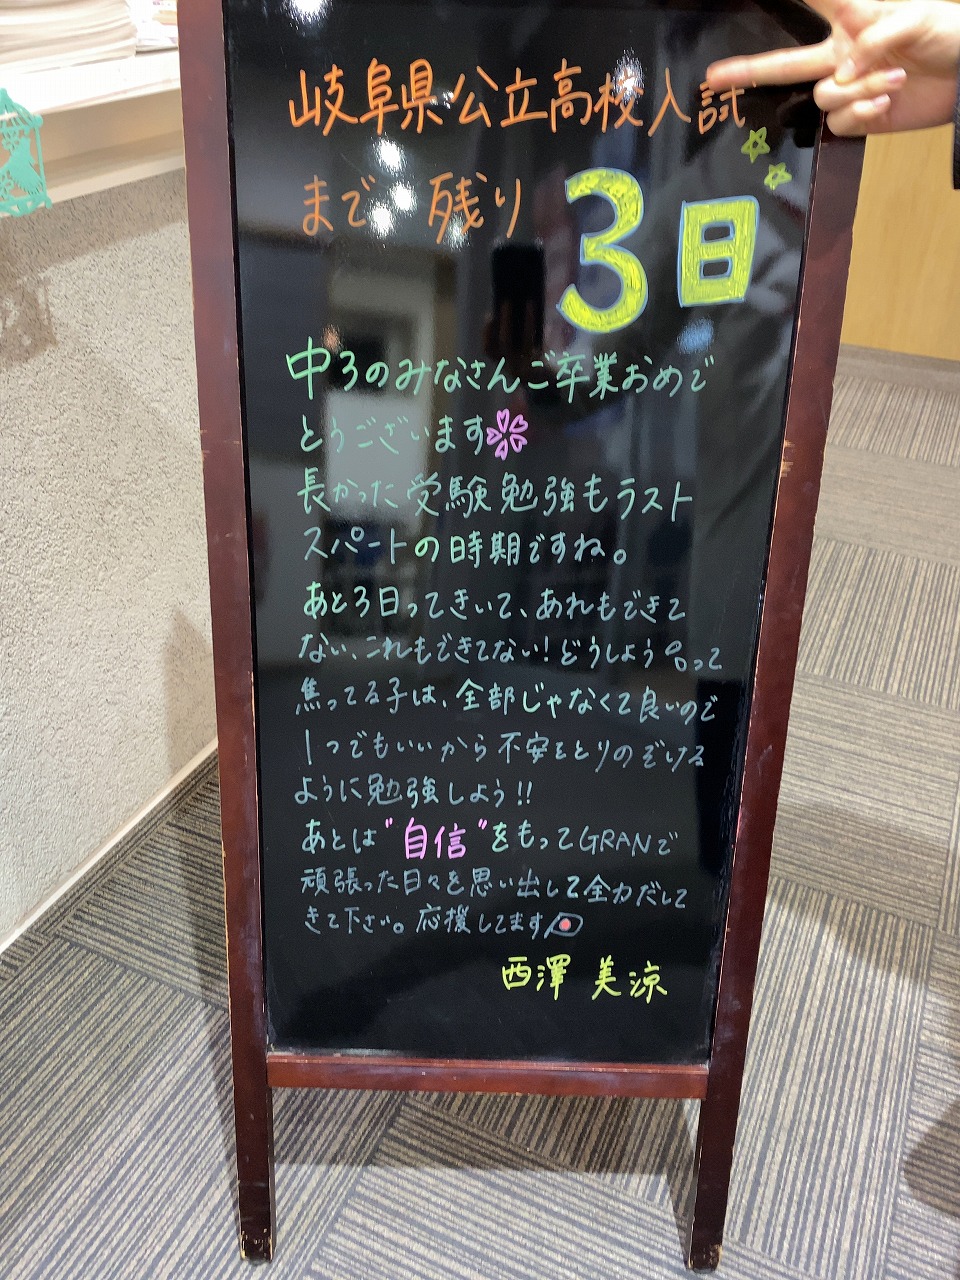 岐阜県公立高校入試
まで 残り 3日
中3のみなさんご卒業おめで
とうございます
長かった受験勉強もラスト
スパートの時期ですね。
あと3日ってきいて、あれもできて
ない、これもできてない!どうしよう。って
焦ってる子は、全部じゃなくて良いので
1つでもいいから不安をとりのぞける
ように勉強しよう!!
あとは"自信"をもってGRANで
頑張った日々を思い出して全力だして
きて下さい。応援してます
西澤 美涼